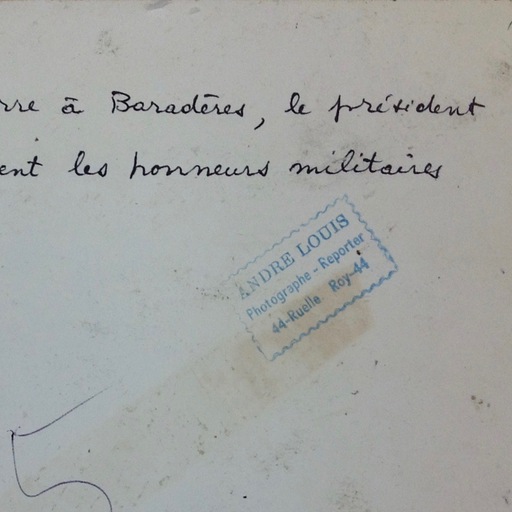 rre à Baradères, le président
ent les honneurs militaires
ANDRE LOUIS
Photographe - Reporter
44-Ruelle Roy-44
5